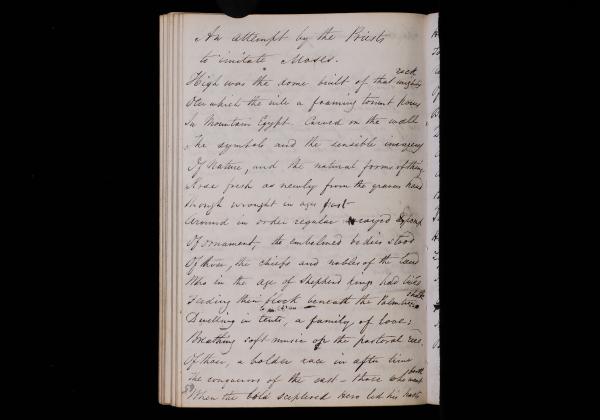 An attempt by the Priests
to imitate Moses.
High was the dome built of that mighty rock
Oer which the nile a foaming torrent pours
In Mountain Egypt. Carved on the wall
The symbols and the sensible imagery
Of Nature, and the natural forms of things
Arose fresh as newly from the gravers hand
Though wrought in ages past
Around in order regular raised
Of ornament, the embalmed bodies stood
Of those, the chiefs and nobles of the land
Who in the age of Shepherd Kings had lived
Feeding their flock beneath the Palm trees shade
Dwelling in tents, a family of love;
Breathing soft music of the pastoral reed.
Of those, a bolder race in after time
The conquerors of the east – those who
When the bold sceptered Hero led his hosts